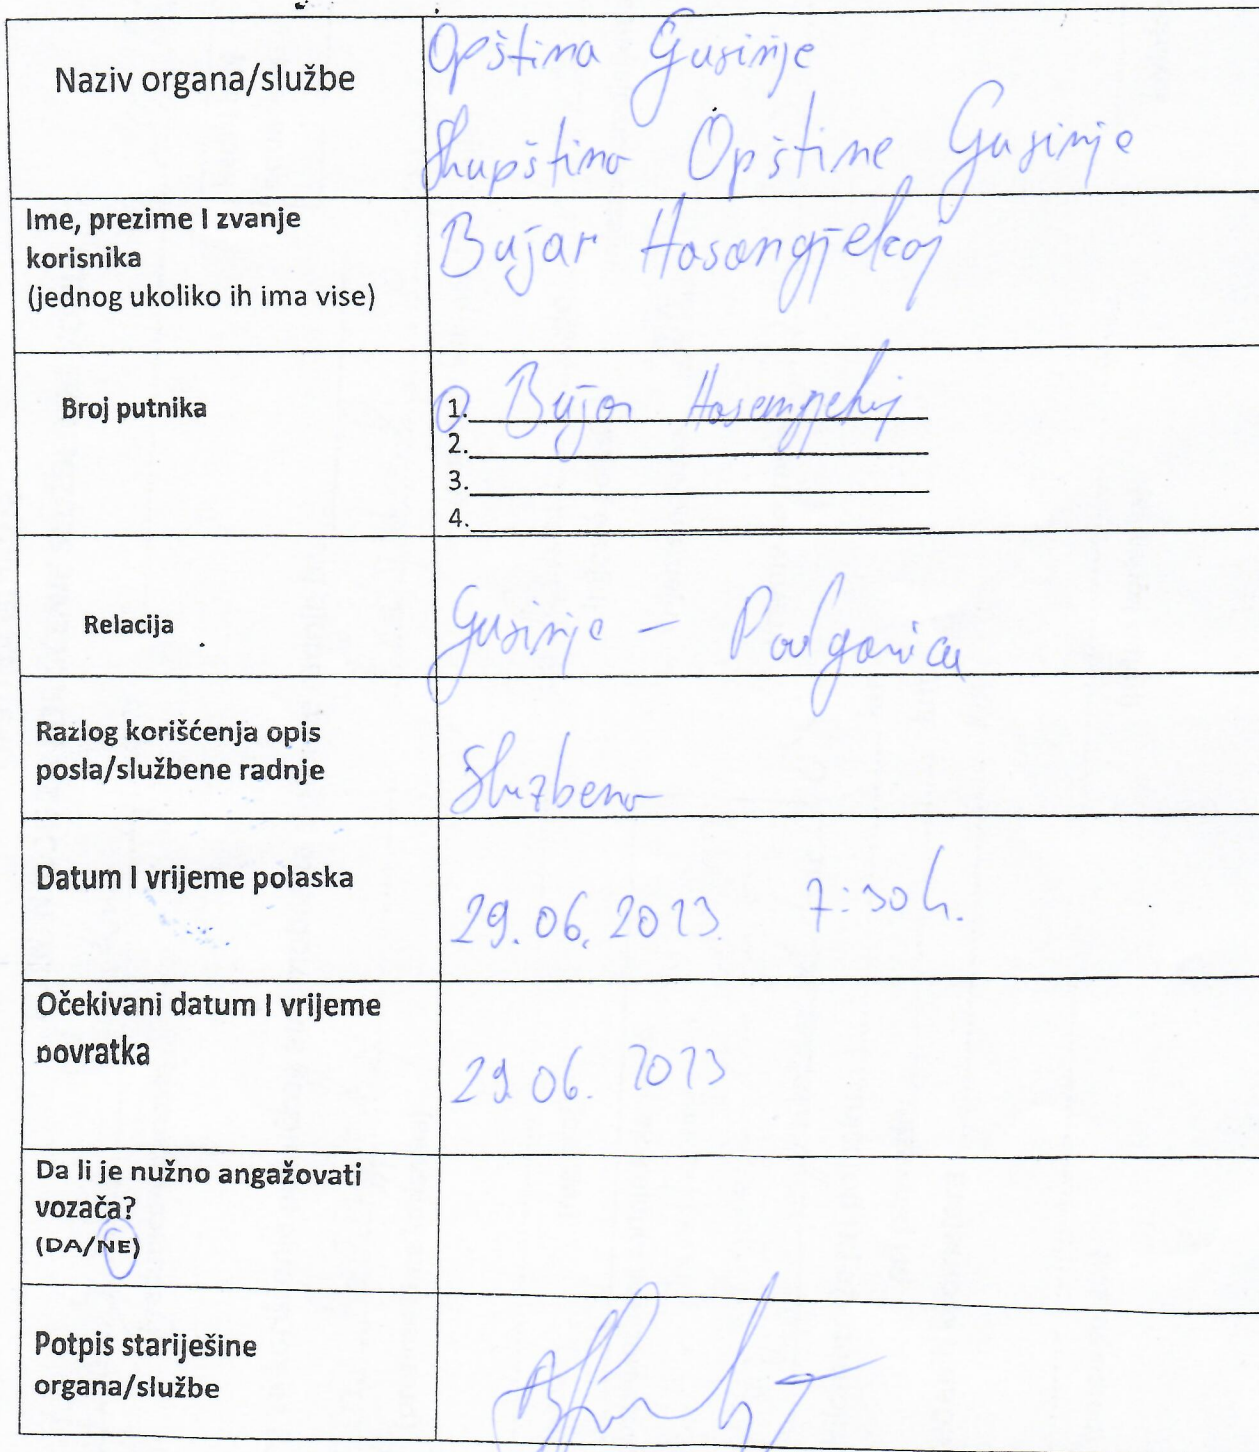 Naziv organa/službe
Opština Gusinje
Skupština Opštine Gusinje
Ime, prezime I zvanje
korisnika
(jednog ukoliko ih ima vise)
Bujar Hasangjekaj
Broj putnika
1. Bujar Hasangjekaj
2.
3.
4.
Relacija
Gusinje - Podgorica
Razlog korišćenja opis
posla/službene radnje
Službeno
Datum I vrijeme polaska
29.06.2023. 7:30 h.
Očekivani datum I vrijeme
povratka
29.06.2023
Da li je nužno angažovati
vozača?
(DA/NE)
Potpis stariješine
organa/službe